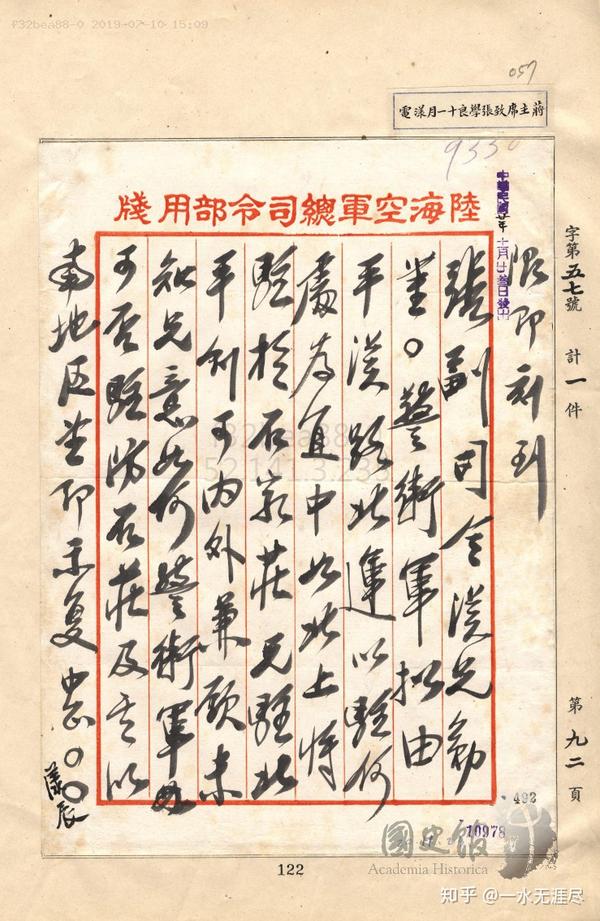 f32bea88-0 2019-07-10 15:09
057
蔣主席致張學良十一月漾電
9330
陸海空軍總司令部用牋
中華民國廿年十一月廿叁日發出
字第五七號 計一件
第九二頁
限即刻到
張副司令漢兄勛
鑒。警衛軍拟由
平漢路北運以駐何
處為宜中如北上將
駐於石家莊兄駐北
平則可內外兼顧未
知兄意如何警衛軍
可否駐防石莊及其以
南地区即示复中正〇〇
漾辰
f32bea88
52.141.3.233
492
10978
國史館
Academia Historica
122
知乎 @一水无涯尽